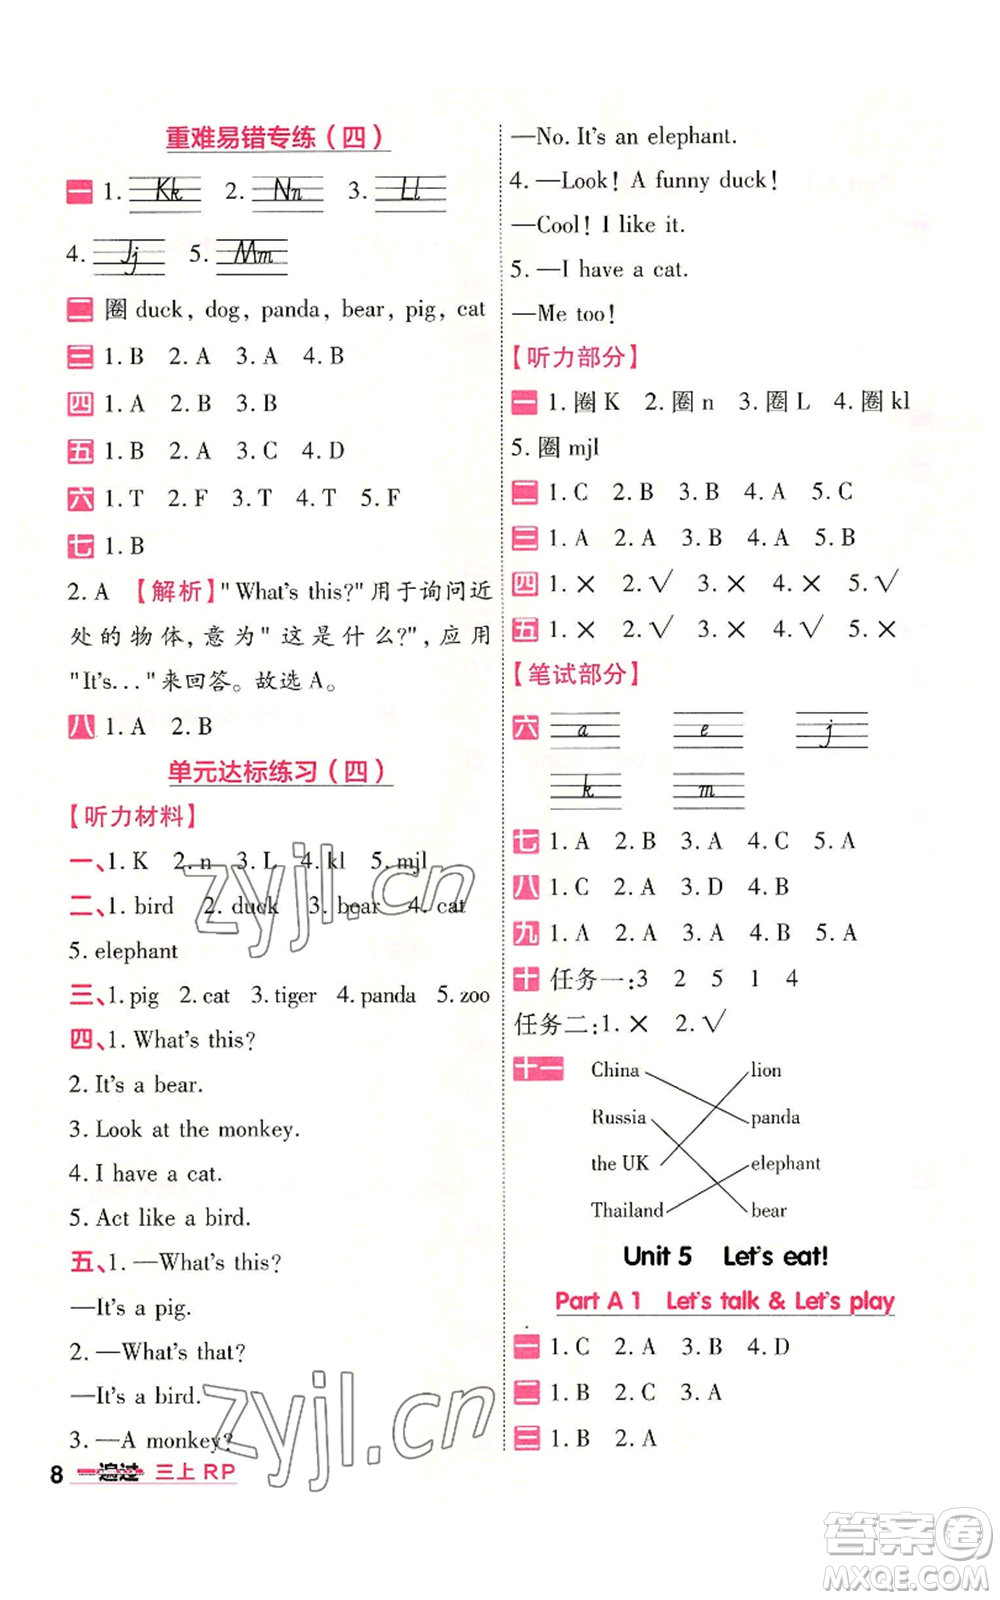 重难易错专练(四)
一 1. Kk 2. Nn 3. Ll
4. Jj 5. Mm
二 圈 duck, dog, panda, bear, pig, cat
三 1. B 2. A 3. A 4. B
四 1. A 2. B 3. B
五 1. B 2. A 3. C 4. D
六 1. T 2. F 3. T 4. T 5. F
七 1. B
2. A 【解析】"What's this?"用于询问近
处的物体,意为"这是什么?",应用
"It's..."来回答。故选A。
八 1. A 2. B
单元达标练习(四)
【听力材料】
一、1. K 2. n 3. L 4. kl 5. mjl
二、1. bird 2. duck 3. bear 4. cat
5. elephant
三、1. pig 2. cat 3. tiger 4. panda 5. zoo
四、1. What's this?
2. It's a bear.
3. Look at the monkey.
4. I have a cat.
5. Act like a bird.
五、1. —What's this?
—It's a pig.
2. —What's that?
—It's a bird.
3. —A monkey?
8 一遍过 三上 RP
—No. It's an elephant.
4. —Look! A funny duck!
—Cool! I like it.
5. —I have a cat.
—Me too!
【听力部分】
一 1. 圈 K 2. 圈 n 3. 圈 L 4. 圈 kl
5. 圈 mjl
二 1. C 2. B 3. B 4. A 5. C
三 1. A 2. A 3. B 4. A 5. B
四 1. × 2. √ 3. × 4. × 5. √
五 1. × 2. √ 3. × 4. √ 5. ×
【笔试部分】
六 a e j
k m
七 1. A 2. B 3. A 4. C 5. A
八 1. C 2. A 3. D 4. B
九 1. A 2. A 3. B 4. B 5. A
十 任务一:3 2 5 1 4
任务二:1. × 2. √
十一 China lion
Russia panda
the UK elephant
Thailand bear
Unit 5 Let's eat!
Part A 1 Let's talk & Let's play
一 1. C 2. A 3. B 4. D
二 1. B 2. C 3. A
三 1. B 2. A
zyjl.cn
zyjl.cn
答案圈
MXQE.COM